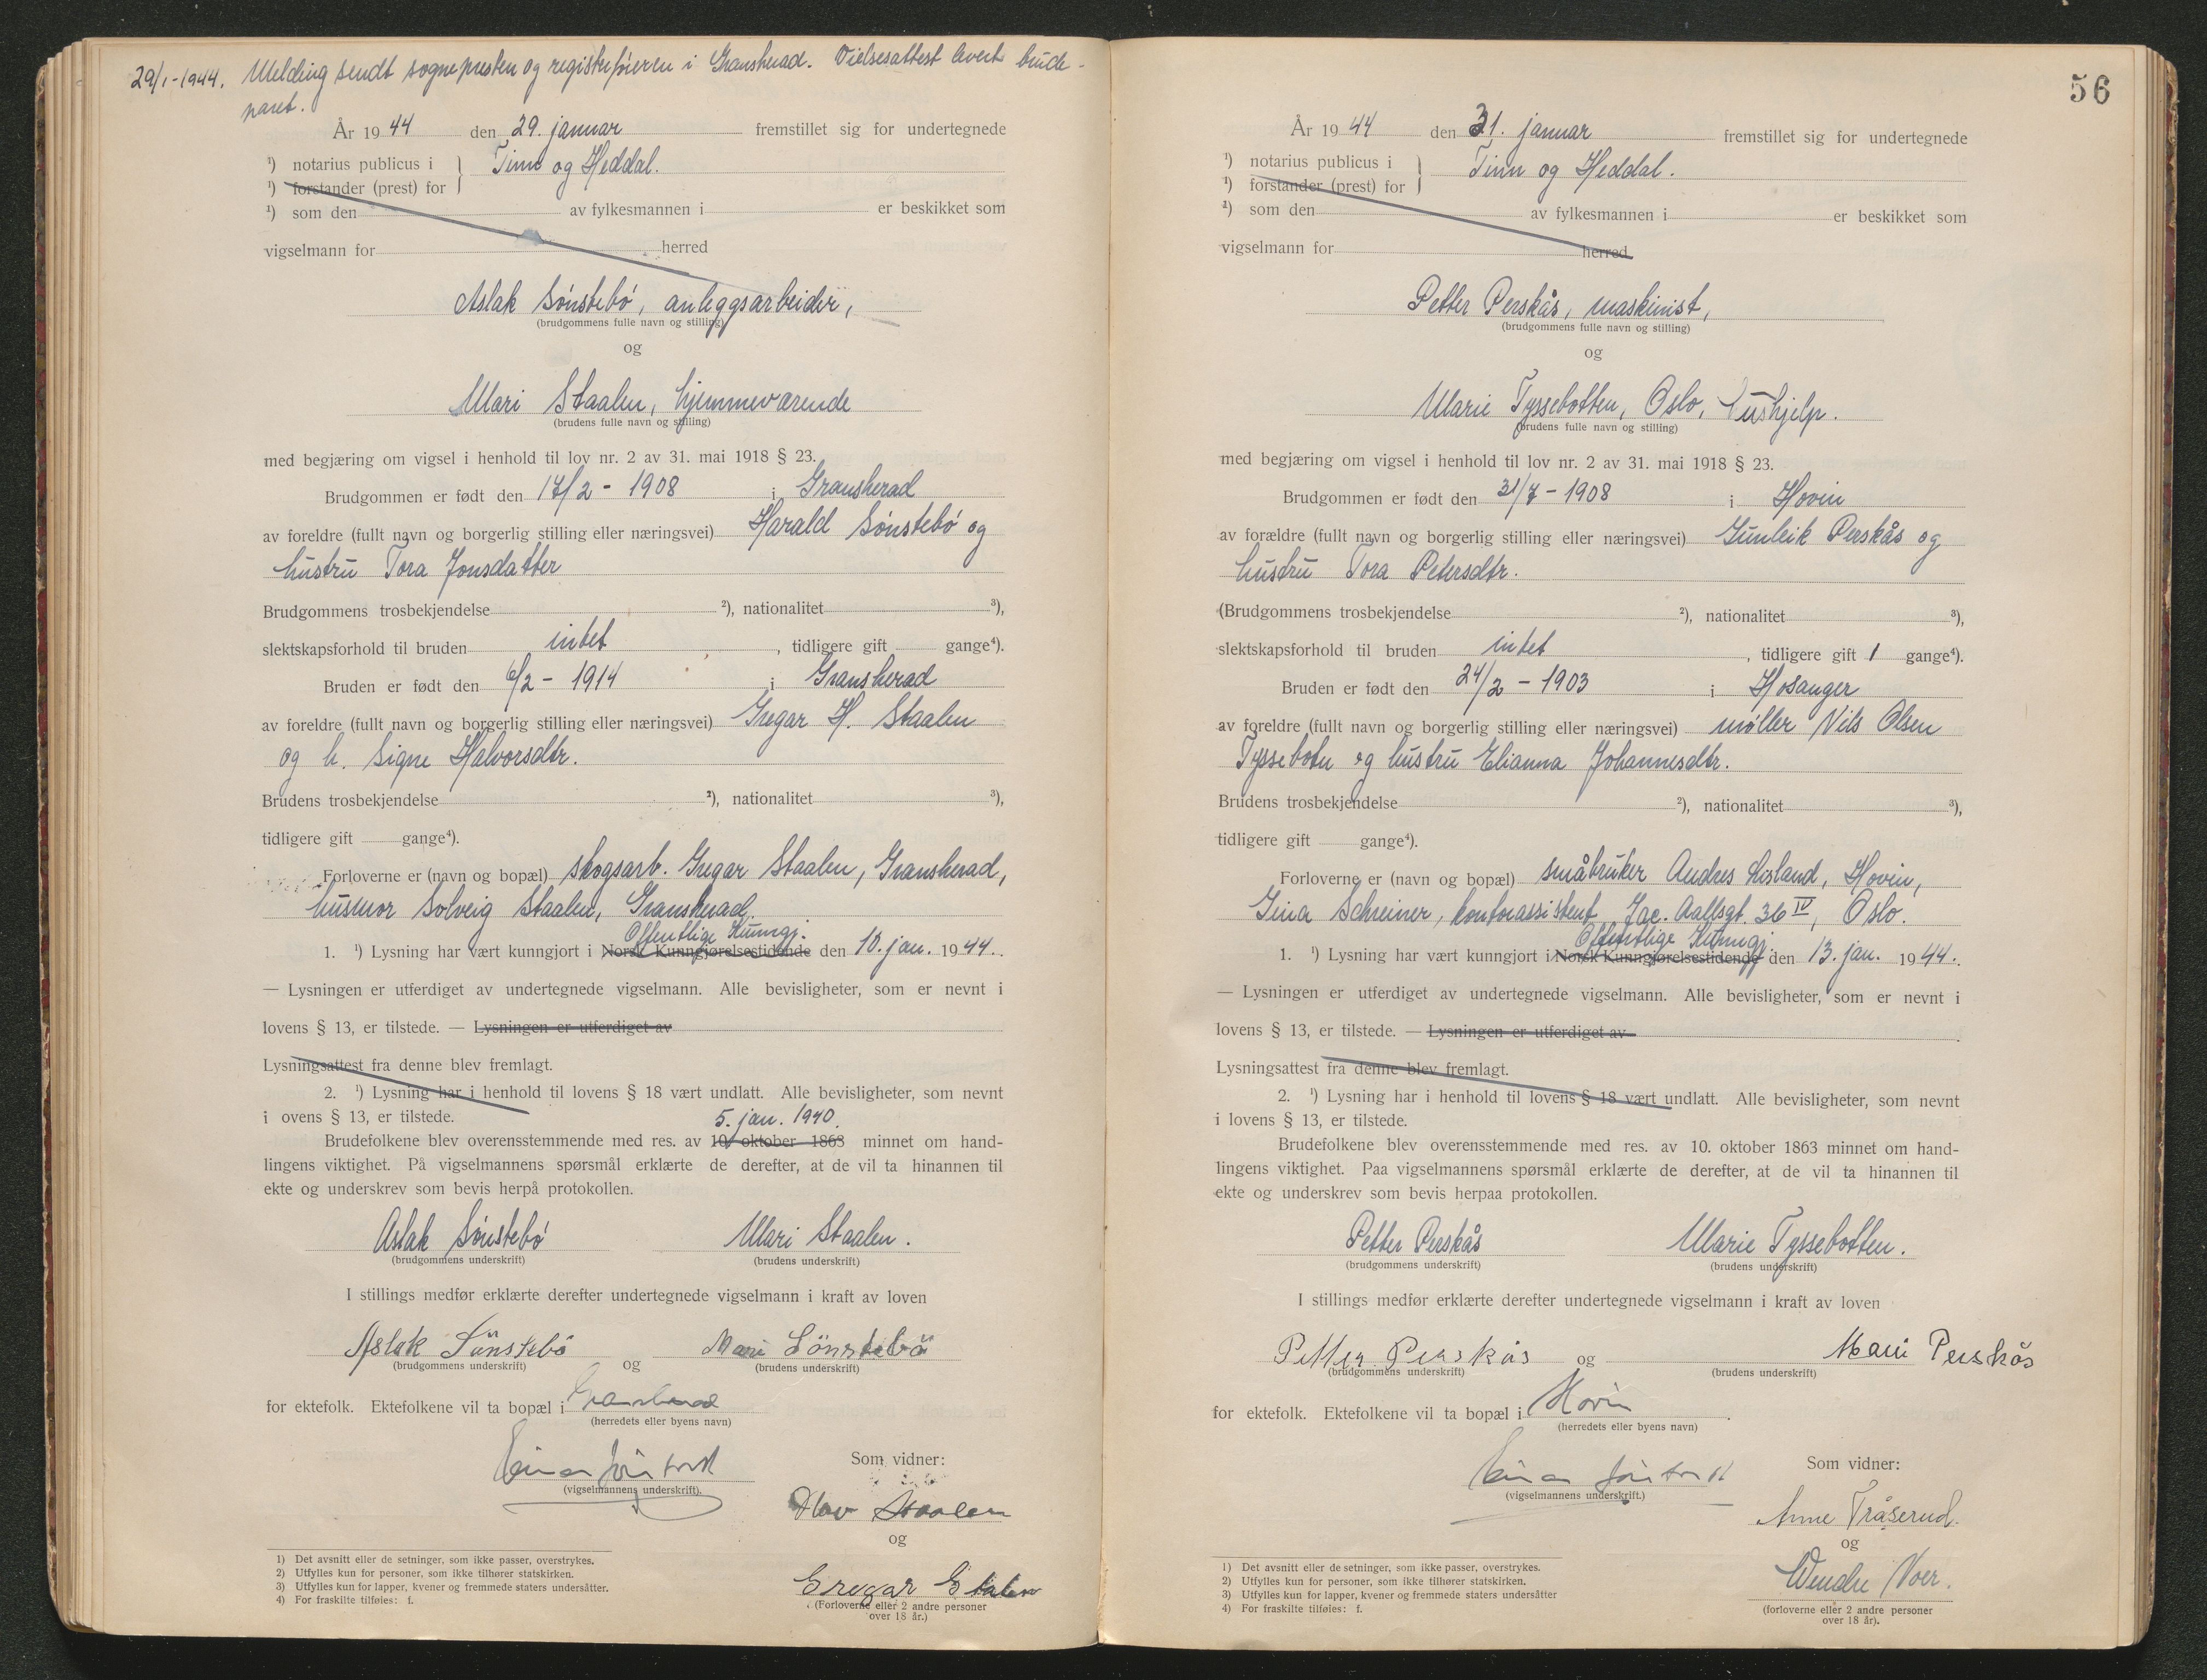 29/1-1944. Melding sendt sognepresten og registerføreren i Gransherad. Vielsesattest levert brude-
paret.
År 1944 den 29. januar fremstillet sig for undertegnede
¹) notarius publicus i } Tinn og Heddal.
¹) forstander (prest) for
¹) som den av fylkesmannen i er beskikket som
vigselmann for herred
Aslak Sønstebø, anleggsarbeider,
(brudgommens fulle navn og stilling)
og
Mari Staalen, hjemmeværende
(brudens fulle navn og stilling)
med begjæring om vigsel i henhold til lov nr. 2 av 31. mai 1918 § 23.
Brudgommen er født den 17/2 - 1908 i Gransherad
av foreldre (fullt navn og borgerlig stilling eller næringsvei) Harald Sønstebø og
hustru Tora Jonsdatter
Brudgommens trosbekjendelse ²), nationalitet ³),
slektskapsforhold til bruden intet, tidligere gift gange⁴).
Bruden er født den 6/2 - 1914 i Gransherad
av foreldre (fullt navn og borgerlig stilling eller næringsvei) Gregar H. Staalen
og h. Signe Halvorsdtr.
Brudens trosbekjendelse ²), nationalitet ³),
tidligere gift gange⁴).
Forloverne er (navn og bopæl) skogsarb. Gregar Staalen, Gransherad,
husmor Solveig Staalen, Gransherad.
Offentlige Kunngj.
1. ¹) Lysning har vært kunngjort i Norsk Kunngjørelsestidende den 10. jan. 1944.
— Lysningen er utferdiget av undertegnede vigselmann. Alle bevisligheter, som er nevnt i
lovens § 13, er tilstede. — Lysningen er utferdiget av
Lysningsattest fra denne blev fremlagt.
2. ¹) Lysning har i henhold til lovens § 18 vært undlatt. Alle bevisligheter, som nevnt
i ovens § 13, er tilstede.
5. jan. 1940.
Brudefolkene blev overensstemmende med res. av 10. oktober 1863 minnet om hand-
lingens viktighet. På vigselmannens spørsmål erklærte de derefter, at de vil ta hinannen til
ekte og underskrev som bevis herpå protokollen.
Aslak Sønstebø Mari Staalen.
(brudgommens underskrift) (brudens underskrift)
I stillings medfør erklærte derefter undertegnede vigselmann i kraft av loven
Aslak Sønstebö og Mari Sönstebö
(brudgommens underskrift) (brudens underskrift)
for ektefolk. Ektefolkene vil ta bopæl i Gransherad
(herredets eller byens navn)
(vigselmannens underskrift).
Som vidner:
Olav Staalen
og
Gregar Stalen
(Forloverne eller 2 andre personer
over 18 år.)
1) Det avsnitt eller de setninger, som ikke passer, overstrykes.
2) Utfylles kun for personer, som ikke tilhører statskirken.
3) Utfylles kun for lapper, kvener og fremmede staters undersåtter.
4) For fraskilte tilføies: f.
56
År 1944 den 31. januar fremstillet sig for undertegnede
¹) notarius publicus i } Tinn og Heddal.
¹) forstander (prest) for
¹) som den av fylkesmannen i er beskikket som
vigselmann for herred
Petter Perskås, maskinist,
(brudgommens fulle navn og stilling)
og
Marie Tyssebotten, Oslo, hushjelp.
(brudens fulle navn og stilling)
med begjæring om vigsel i henhold til lov nr. 2 av 31. mai 1918 § 23.
Brudgommen er født den 31/7 - 1908 i Hovin
av forældre (fullt navn og borgerlig stilling eller næringsvei) Gunleik Perskås og
hustru Tora Petersdtr.
(Brudgommens trosbekjendelse ²), nationalitet ³),
slektskapsforhold til bruden intet, tidligere gift 1 gange⁴).
Bruden er født den 24/2 - 1903 i Hosanger
av foreldre (fullt navn og borgerlig stilling eller næringsvei) møller Nils Olsen
Tyssebotn og hustru Elianna Johannesdtr.
Brudens trosbekjendelse ²), nationalitet ³),
tidligere gift gange⁴).
Forloverne er (navn og bopæl) småbruker Andres Lisland, Hovin,
Gina Schreiner, kontorassistent, Jac. Aallsgt. 36 IV, Oslo.
Offentlige Kunngj.
1. ¹) Lysning har vært kunngjort i Norsk Kunngjørelsestidende den 13. jan. 1944.
— Lysningen er utferdiget av undertegnede vigselmann. Alle bevisligheter, som er nevnt i
lovens § 13, er tilstede. — Lysningen er utferdiget av
Lysningsattest fra denne blev fremlagt.
2. ¹) Lysning har i henhold til lovens § 18 vært undlatt. Alle bevisligheter, som nevnt
i lovens § 13, er tilstede.
Brudefolkene blev overensstemmende med res. av 10. oktober 1863 minnet om hand-
lingens viktighet. Paa vigselmannens spørsmål erklærte de derefter, at de vil ta hinannen til
ekte og underskrev som bevis herpaa protokollen.
Petter Perskås Marie Tyssebotten.
(brudgommens underskrift) (brudens underskrift)
I stillings medfør erklærte derefter undertegnede vigselmann i kraft av loven
Petter Perskås og Marie Perskås
(brudgommens underskrift) (brudens underskrift)
for ektefolk. Ektefolkene vil ta bopæl i Hovin
(herredets eller byens navn)
(vigselmannens underskrift.)
Som vidner:
Anne Tråserud.
og
Wenche Noer.
(forloverne eller 2 andre personer
over 18 år).
1) Det avsnitt eller de setninger, som ikke passer, overstrykes.
2) Utfylles kun for personer, som ikke tilhører statskirken.
3) Utfylles kun for lapper, kvener og fremmede staters undersåtter
4) For fraskilte tilføies: f.